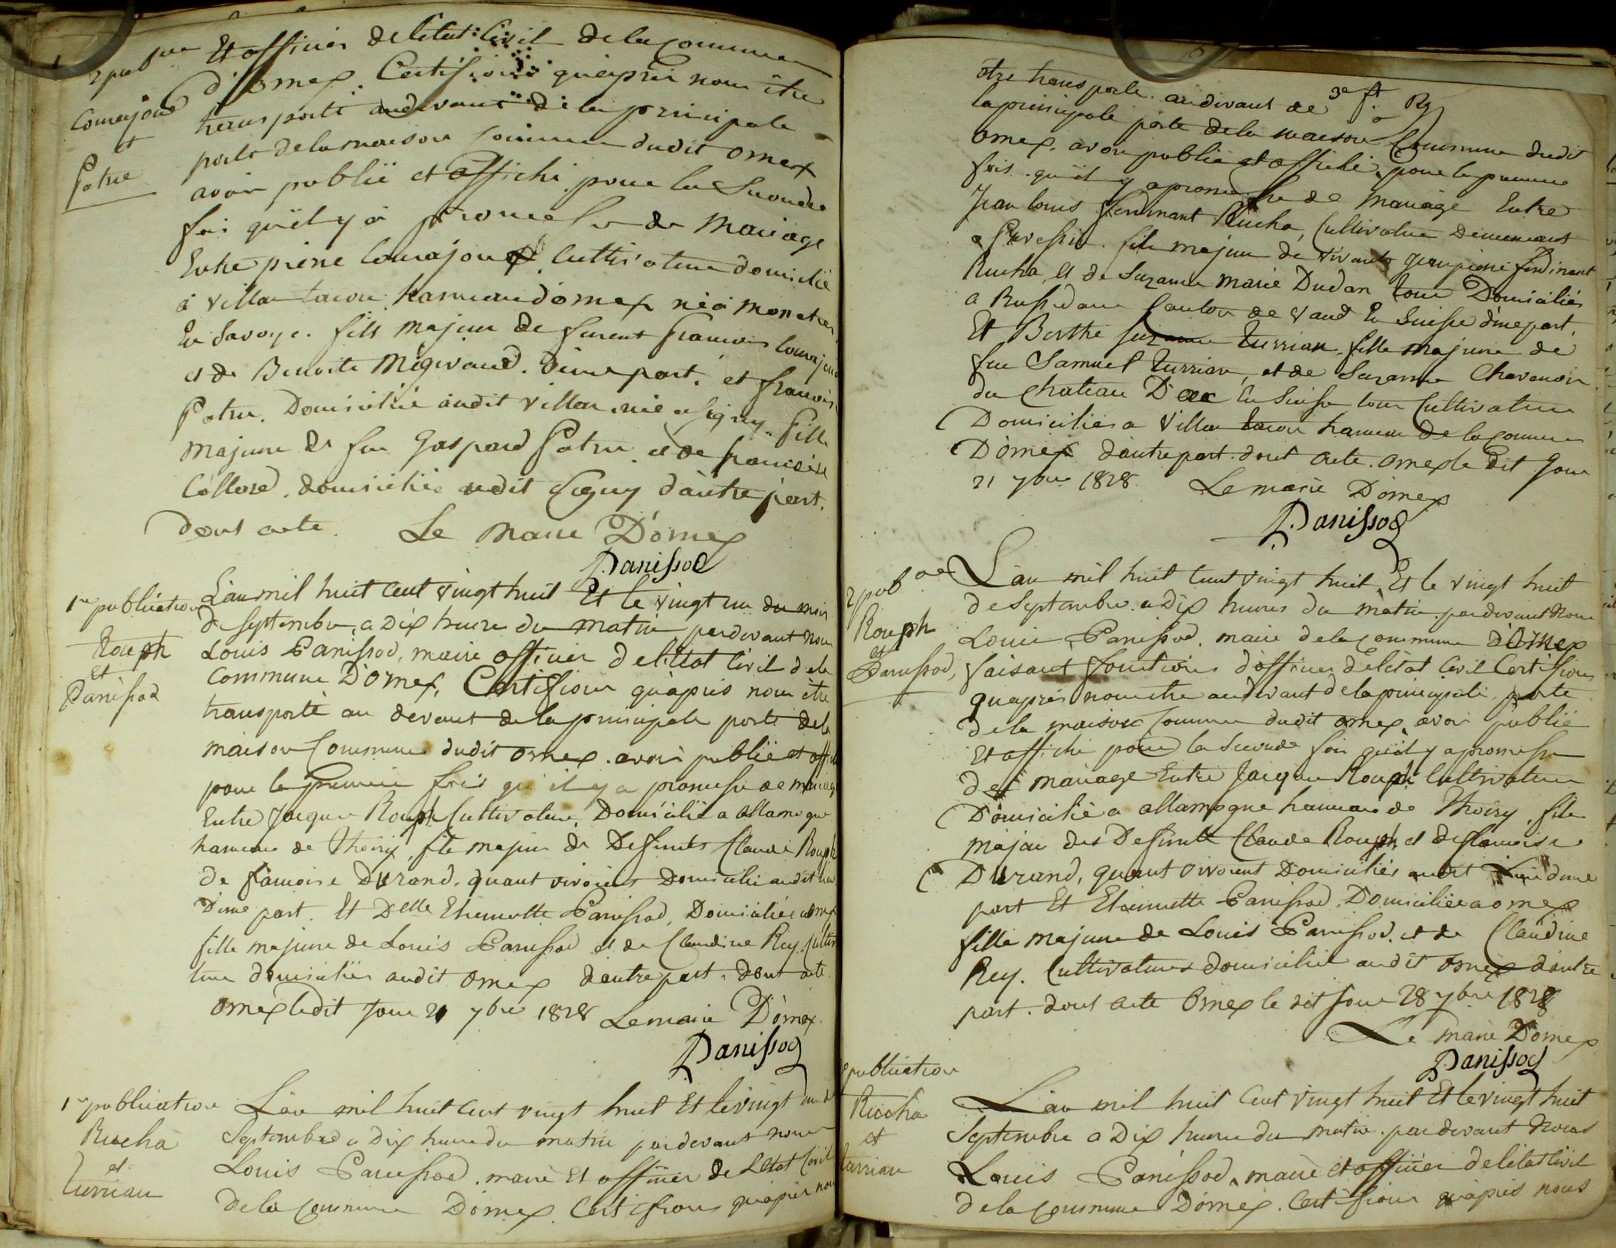 2 pub on Et officier de l'état Civil de la Commune
d'Omex. Certifions qu'après nous être
Courajoud
et
Patrue
transporté audevant de la principale
porte de la maison Commune dudit Omex
avoir publié et affiché pour la Seconde
fois qu'il y a promesse de Mariage
Entre pierre Courajoud Cultivateur domicilié
à Villar tacon hameau d'omex né à Monetier
En Savoye. fils majeur de françois Courajoud
et de Benoite Migivand. d'une part. et françoise
Patru. Domiciliée audit Villar née a Segny. fille
majeure de feu Gaspard Patru et de françoise
Collosd. domiciliée audit Segny d'autre part.
dont acte. Le Maire D'omex
Panissod
1re publication
Rouph
et
Panissod
L'an mil huit Cent vingt huit Et le vingt un du mois
de Septembre, a Dix heure du matin pardevant nous
Louis Panissod, maire officier de l'état Civil de la
Commune D'omex, Certifions qu'après nous être
transporté au devant de la principale porte de la
maison Commune dudit omex avoir publié et affiché
pour la premiere fois qu'il y a promesse de mariage
Entre Jacque Rouph Cultivateur Domicilié a allamogne
hameau de Thoiry fils majeur de Defunts Claude Rouph
de françoise Durand. quant vivoient Domicilié audit
D'une part. Et Delle Etiennette Panissod, Domiciliée a omex
fille majeure de Louis Panissod et de Claudine Rey Cultiva
teur domiciliés audit omex d'autre part. dont acte
omex ledit Jour 21 7bre 1828 Le maire D'omex
Panissod
1re publication
Ruchà
et
turrian
L'an mil huit Cent vingt huit Et le vingt un de
Septembre a Dix heure du matin pardevant nous
Louis Panissod. maire Et officier de L'etat Civil
de la Commune D'omex. Certifions qu'après nous
3e ft. Rg
être transporté audevant de
la principale porte de la maison Commune dudit
omex. avoir publié et affiché pour la premiere
fois qu'il y a promesse de Mariage Entre
Jean louis ferdinant Rucha, Cultivateur Demeurant
a fils majeur de vivants jean pierre ferdinant
Rucha et de Suzanne Marie Dudan tous Domiciliés
a Canton de Vaud En Suisse d'une part.
Et Berthe Suzanne turrian. fille majeure de
feu Samuel turrian, et de Suzanne
du Chateau D'oex En Suisse tous Cultivateurs
Domiciliés a Villar tacon hameau de la Commune
D'omex d'autre part. dont acte. omex le Dit Jour
21 7bre 1828. Le maire D'omex
Panissod
2 pub on
Rouph
et
Panissod,
L'an mil huit Cent vingt huit, Et le vingt huit
de Septembre a Dix heures du matin pardevant Nous
Louis Panissod, maire de la Commune d'omex
faisant fonctions d'officier de l'état Civil Certifions
qu'après nous etre audevant de la principale porte
de la maison Commune dudit omex avoir publié
Et affiché pour la Seconde fois qu'il y a promesse
de mariage Entre Jacque Rouph Cultivateur
Domicilié a allamogne hameau de Thoiry. fils
majeur des Defunts Claude Rouph et de françoise
Durand, quant vivoient Domiciliés audit lieu d'une
part Et Etiennette Panissod. Domiciliée a omex
fille majeure de Louis Panissod. et de Claudine
Rey. Cultivateurs domicilié audit omex d'autre
part. dont acte Omex le dit Jour 28 7bre 1828
Le maire D'omex
Panissod
publication
Ruchà
et
turrian
L'an mil huit Cent vingt huit Et le vingt huit
Septembre a Dix heure du matin. pardevant Nous
Louis Panissod, maire et officier de l'etat Civil
de la Commune D'omex. Certifions qu'après nous